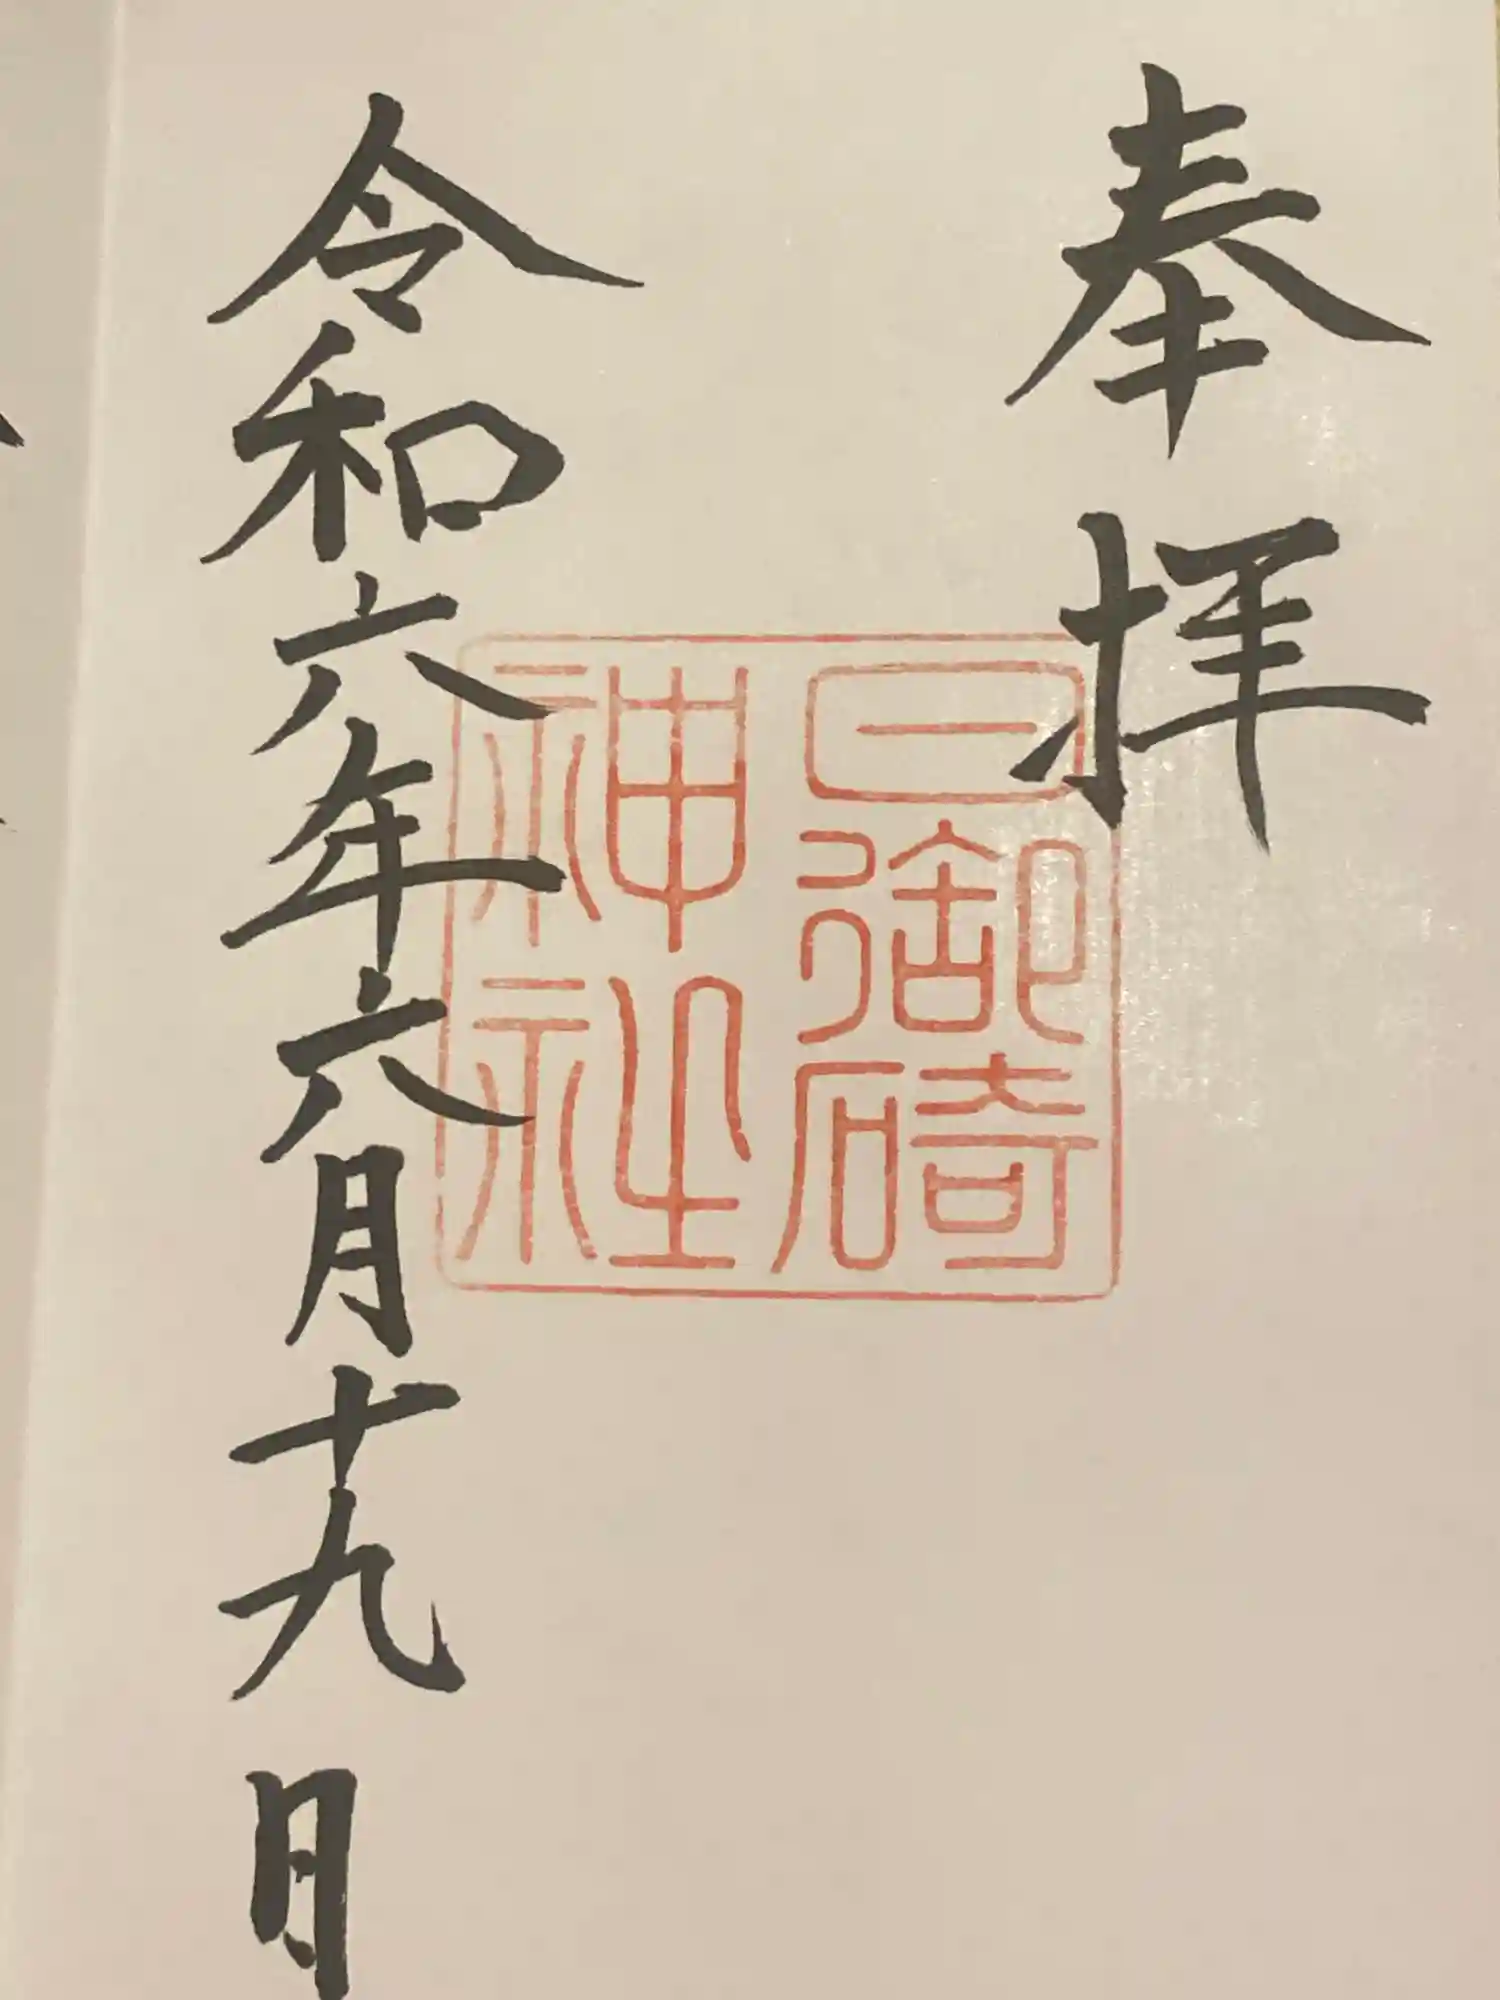 奉拝
日御碕
神社
令和六年六月十九日